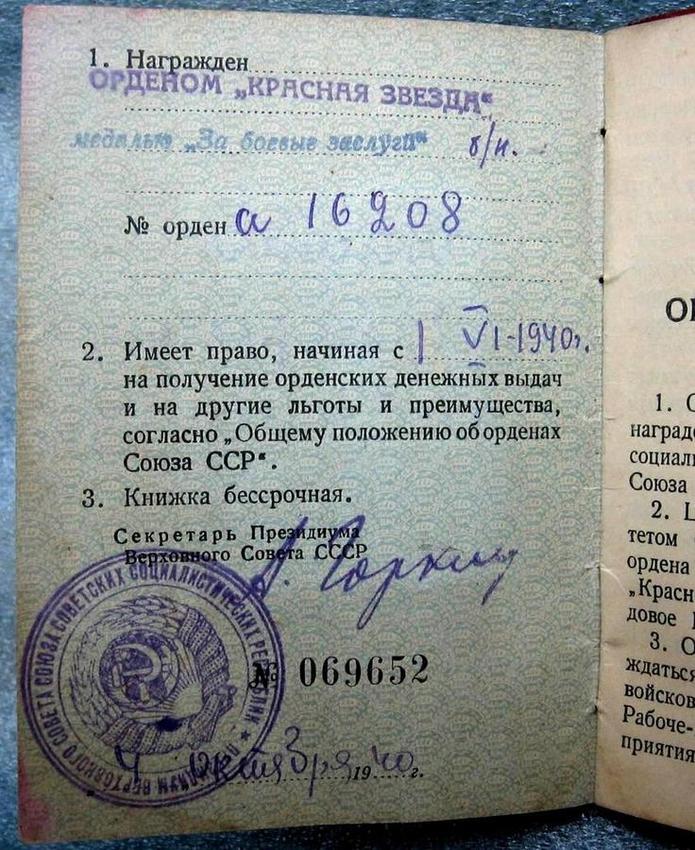 1. Награжден
ОРДЕНОМ „КРАСНАЯ ЗВЕЗДА“
медалью „За боевые заслуги“ б/н.
№ орден а 16208
2. Имеет право, начиная с 1 VI-1940г.
на получение орденских денежных выдач
и на другие льготы и преимущества,
согласно „Общему положению об орденах
Союза ССР“.
3. Книжка бессрочная.
Секретарь Президиума
Верховного Совета СССР
А. Горкин
ПРЕЗИДИУМ ВЕРХОВНОГО СОВЕТА СОЮЗА СОВЕТСКИХ СОЦИАЛИСТИЧЕСКИХ РЕСПУБЛИК
№ 069652
„4 “ октября 1940 г.
1.
награ
социал
Союза
2.
тетом
ордена
„Красн
довое
3.
ждаться
войсков
Рабоче-
приятия